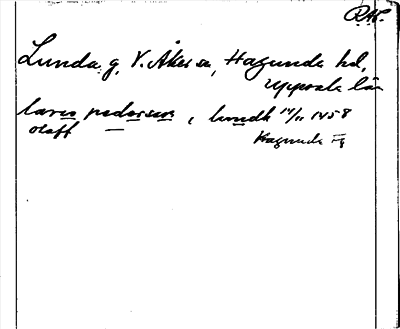 RAP.
Lunda, g, V. Åker sn, Hagunda hd,
Uppsala län
lares pedersen, lundh 14/11 1458
olaff —
Hagunda